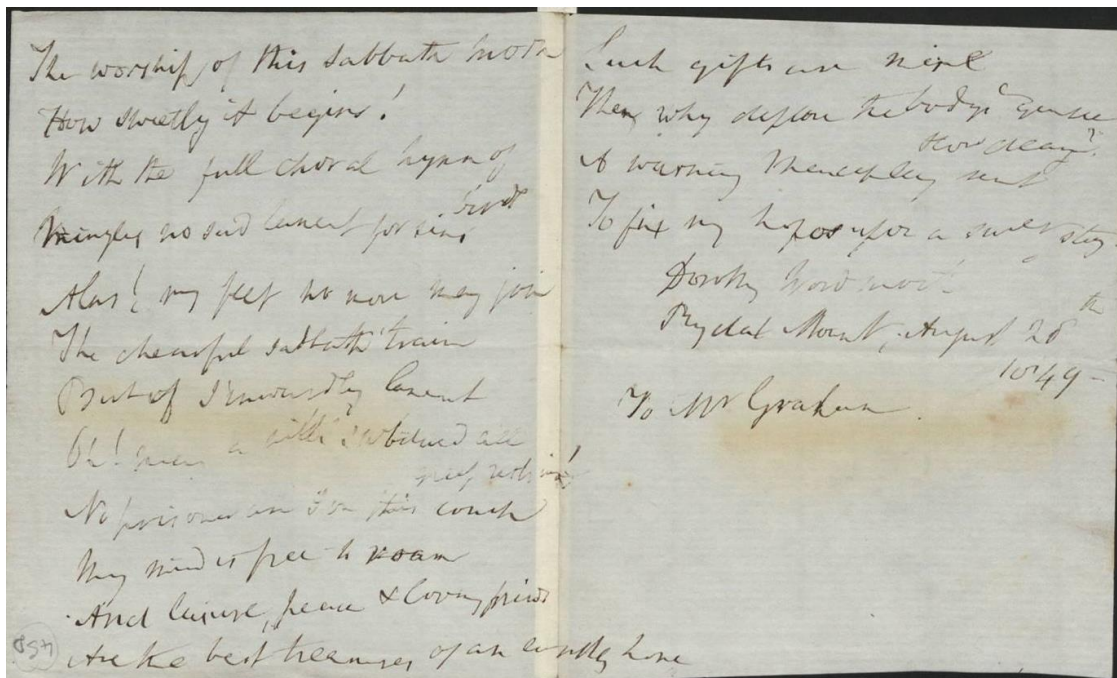 The worship of this sabbath morn
How sweetly it begins!
With the full choral hymn of
birds
Mingles no sad lament for sins
Alas! my feet no more may join
The chearful sabbath train
But if I inwardly lament
Oh! may a will subdued all
grief restrain!
No prisoner am I on this couch
My mind is free to roam
And leisure, peace & loving friends
Are the best treasures of an earthly home
Such gifts are mine
Then why deplore the body's
slow decay?
A warning mercifully sent
To fix my hopes upon a surer stay
Dorothy Wordsworth
Rydal Mount, August 28th
1849
To Mr Graham